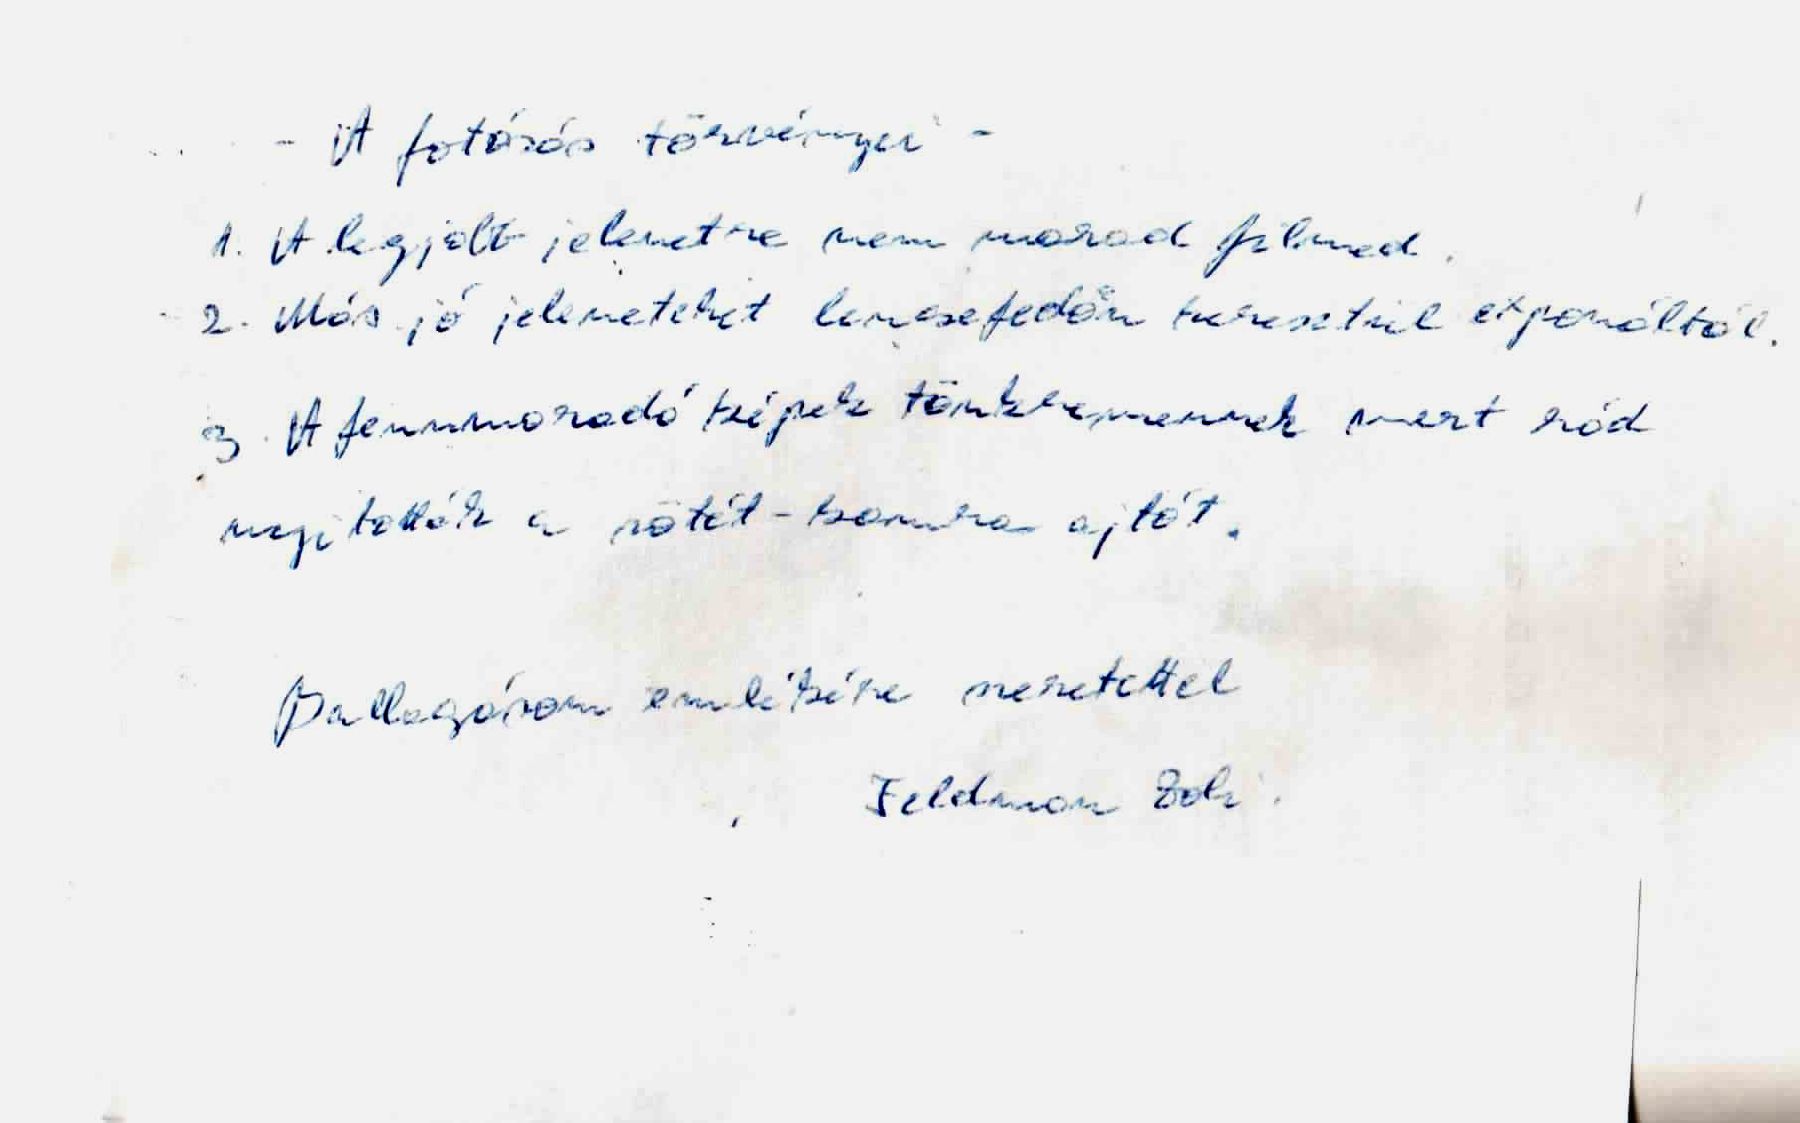 - A fotózás törvényei -
1. A legjobb jelenetre nem marad filmed.
2. Más jó jeleneteket lencsefedőn keresztül exponáltál.
3. A fennmaradó képek tönkremennek mert rád
nyitották a sötét-kamra ajtót.
Ballagásom emlékére szeretettel
Feldman Zoli